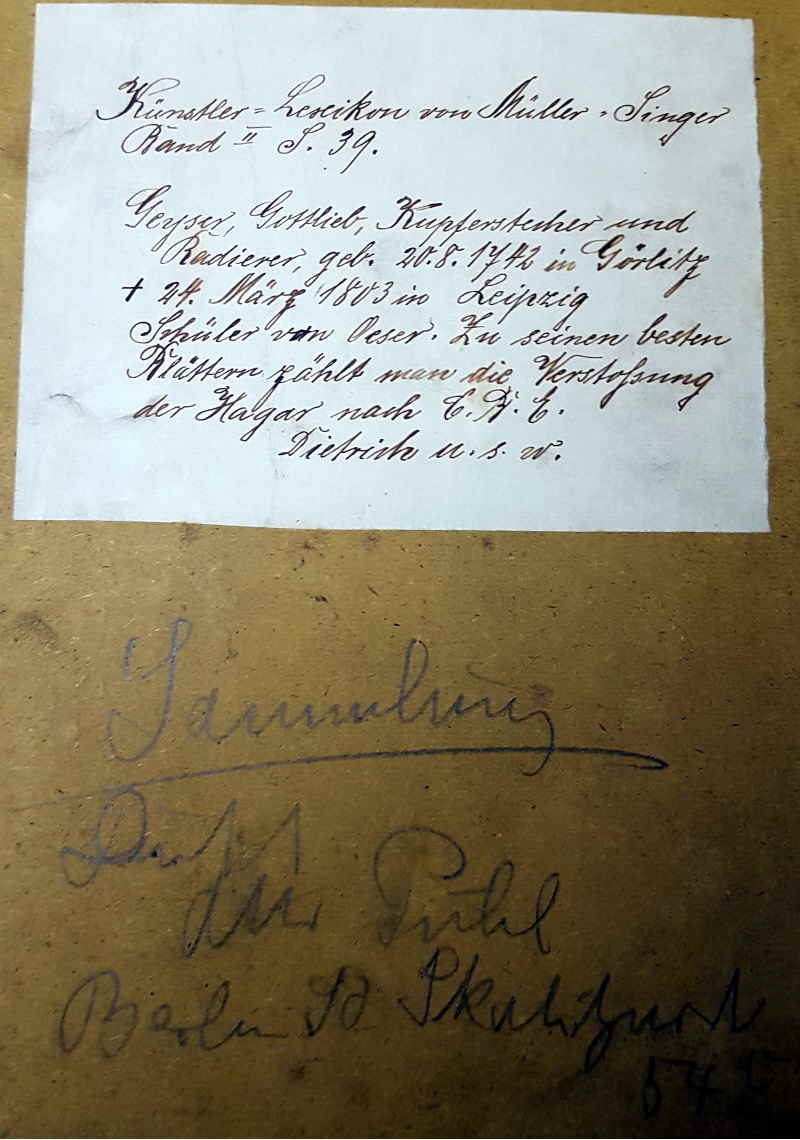 Künstler = Lexikon von Müller = Singer
Band II S. 39.
Geyser, Gottlieb, Kupferstecher und
Radierer, geb. 20.8.1742 in Görlitz
† 24. März 1803 in Leipzig
Schüler von Oeser. Zu seinen besten
Blättern zählt man die Verstoßung
der Hagar nach C. W. E.
Dietrich u. s. w.
Sammlung
Puhl
Berlin SO
54